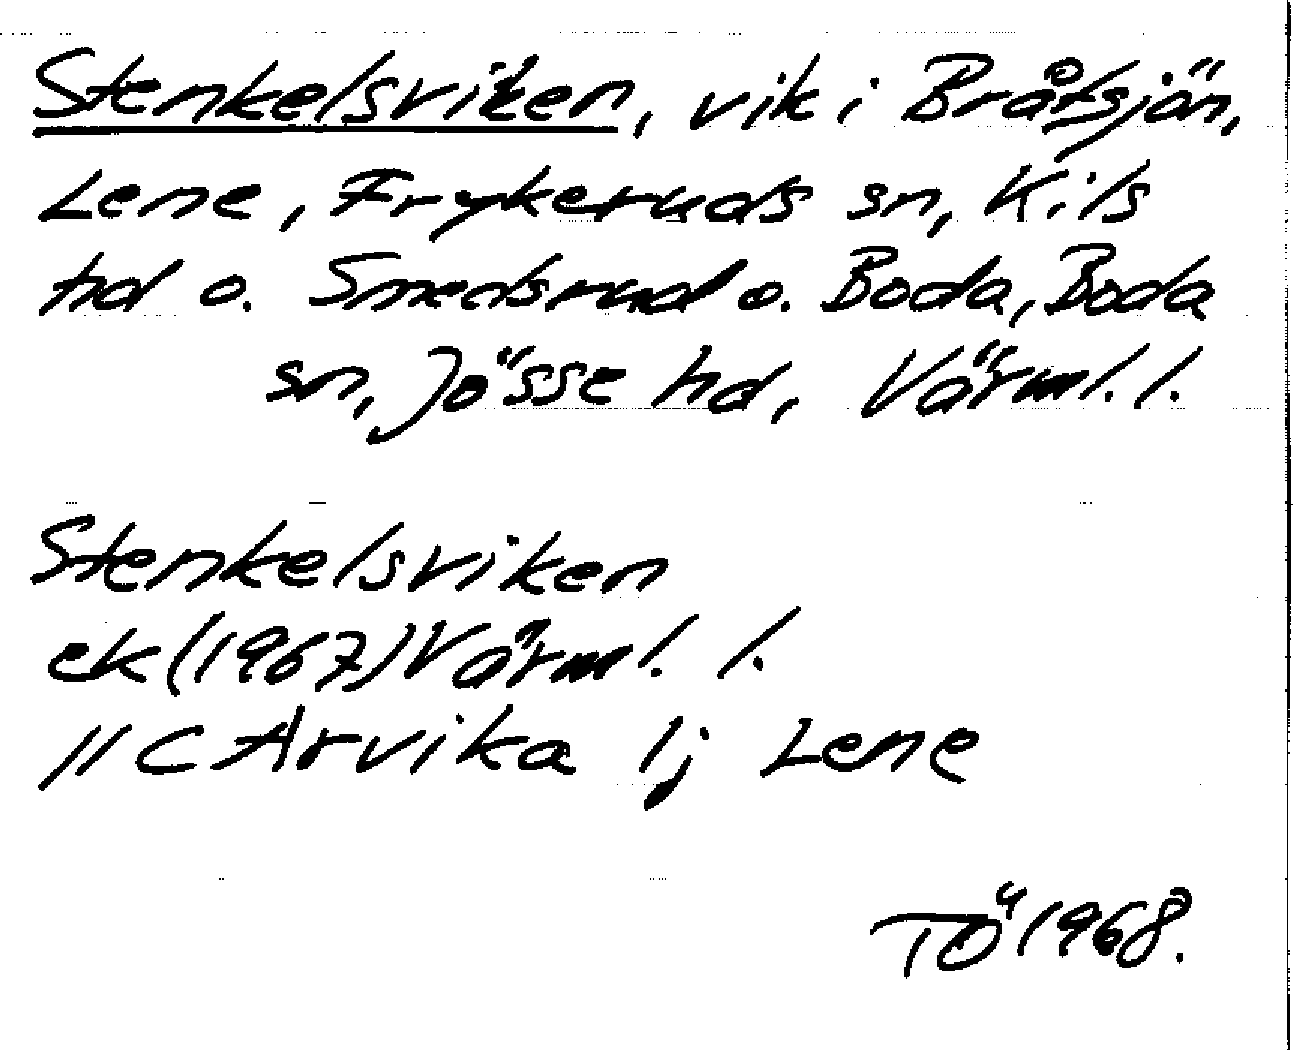 Stenkelsviken, vik i Bråtsjön,
Lene, Frykeruds sn, Kils
hd o. Smedsrud o. Boda, Boda
sn, Jösse hd, Värml. l.
Stenkelsviken
ek (1967) Värml. l.
11 C Arvika 1j Lene
TÖ 1968.